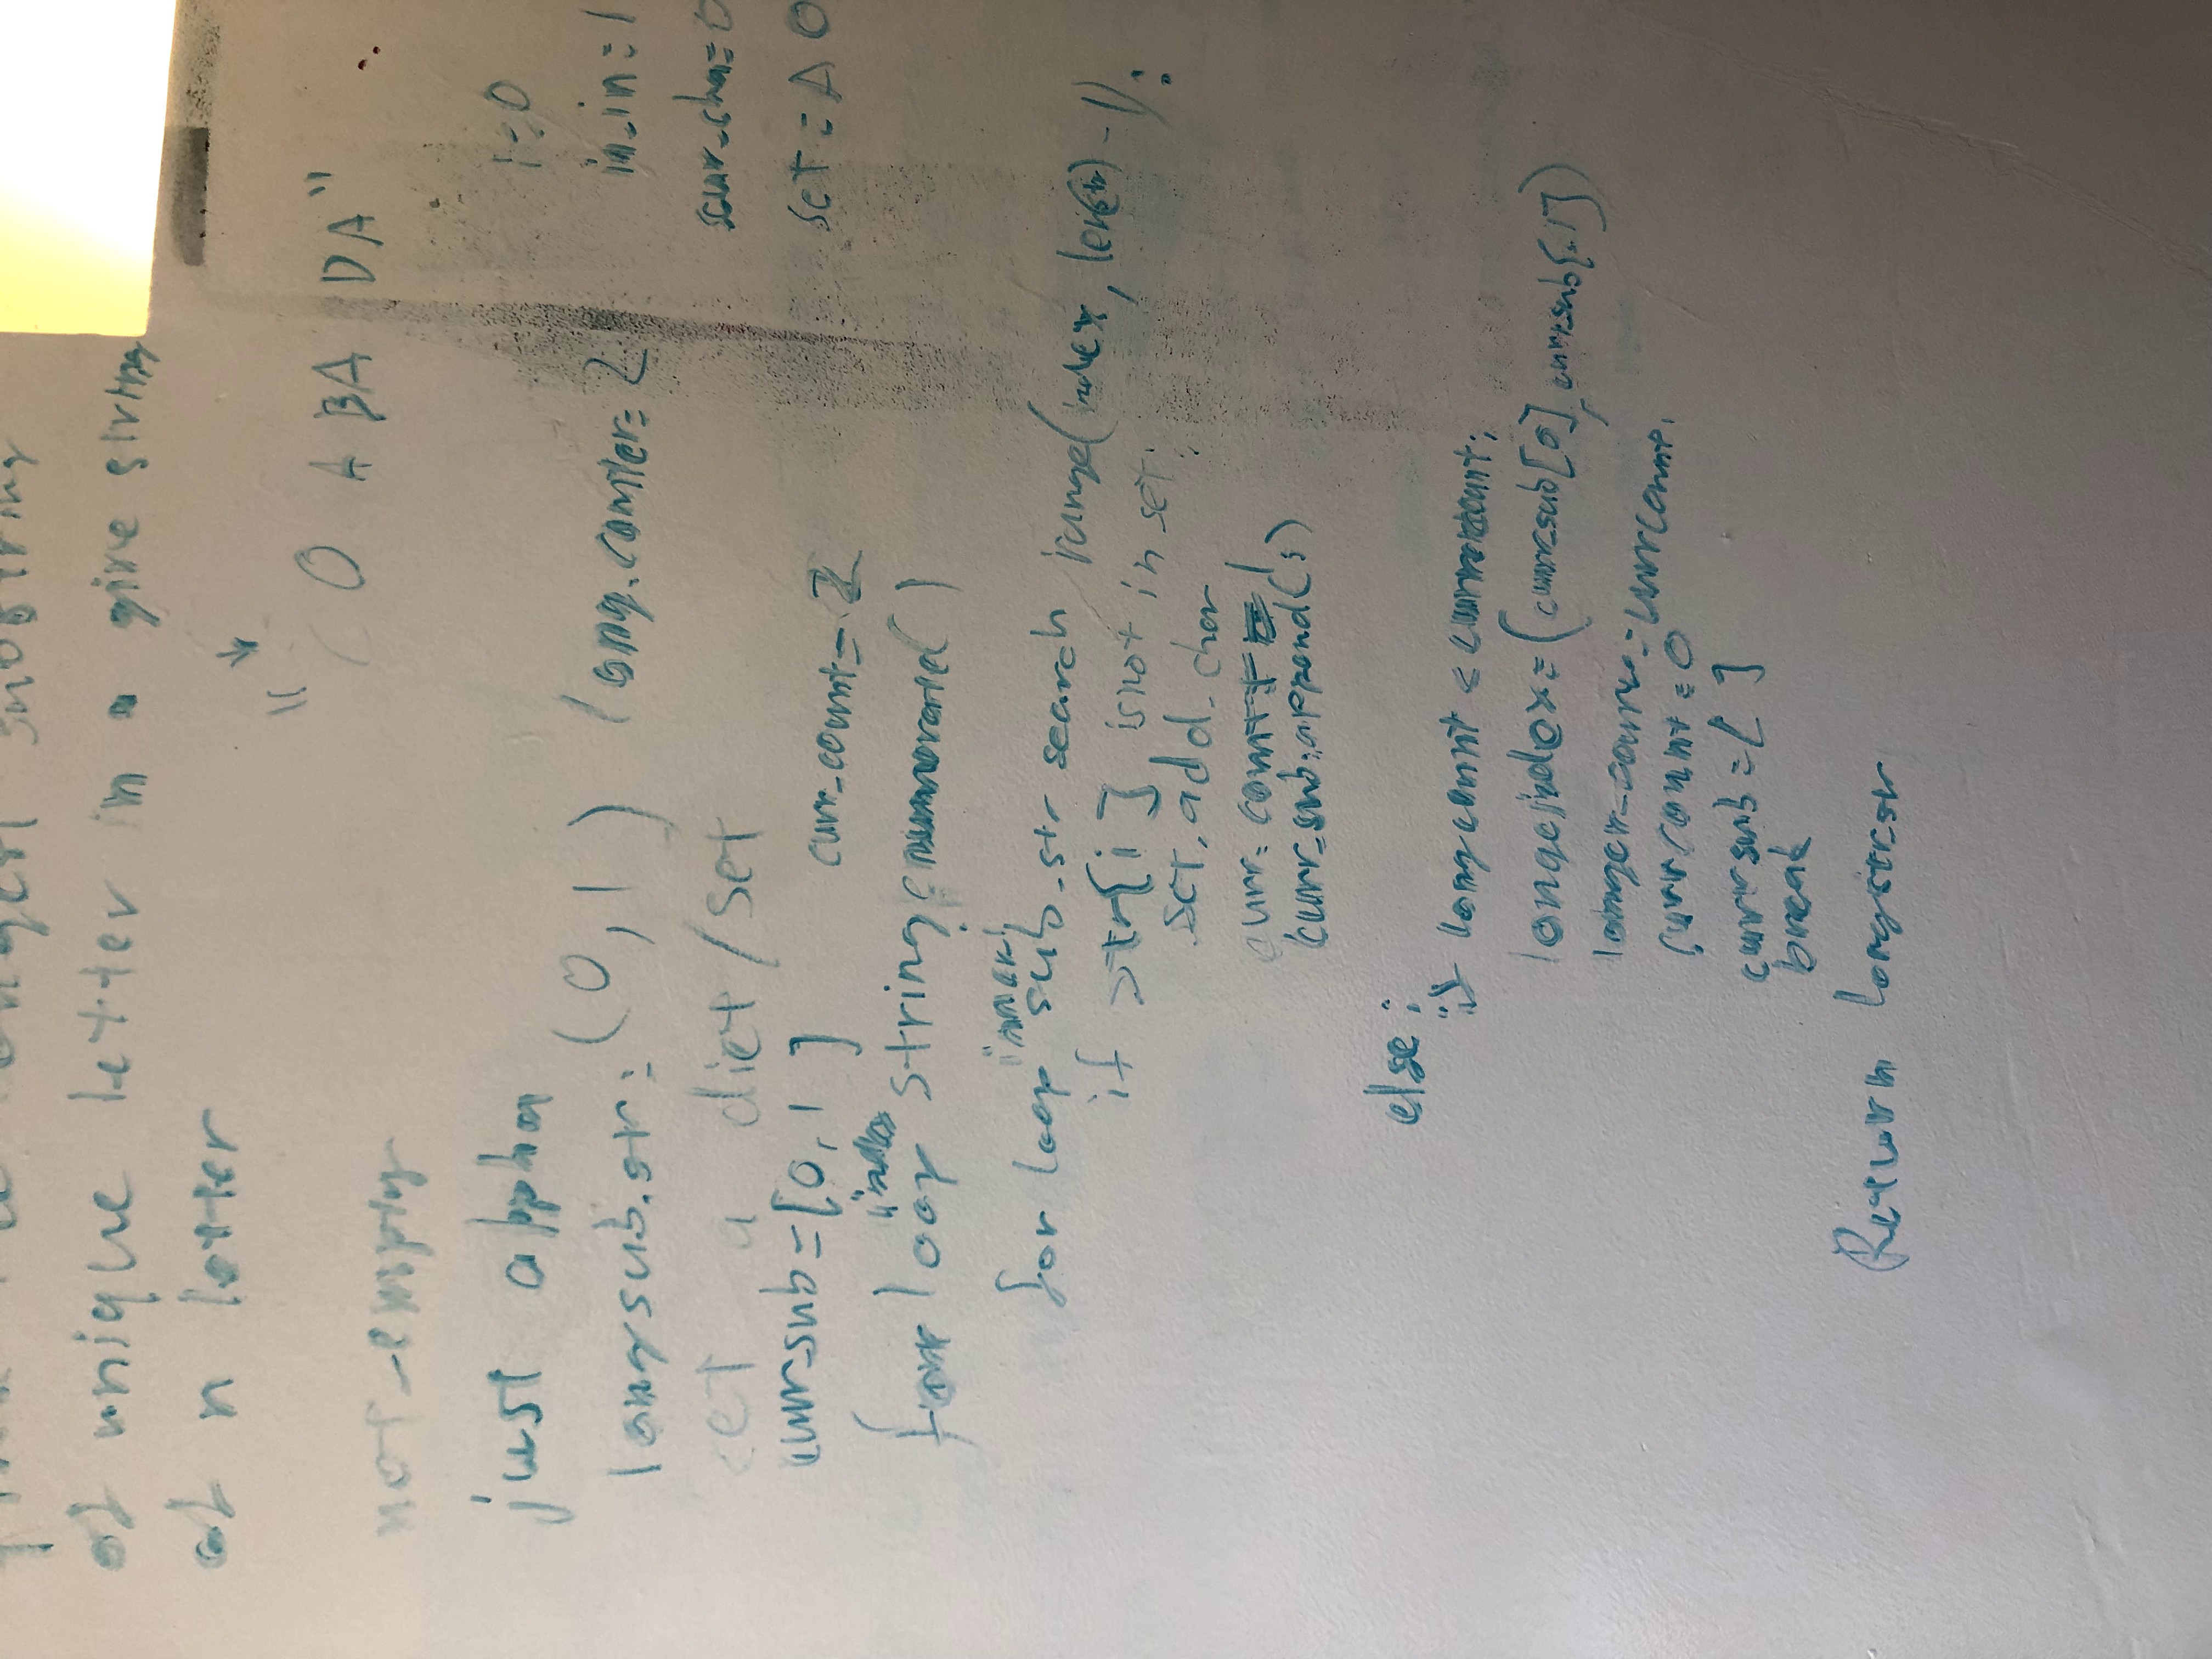 longest substring
of unique letter in a give string
of n letter
" O A BA DA"
not-empty
just alpha
i=0
longsub.str: (0,1) long.counter= 2
in_in=1
set a dict/set
curr_cha=0
curr_sub=[0,1] curr_count= 2
set = A O
for loop "index string enumerate()
for loop "inner i sub.str search range(index, len(str)-1):
if str[i] is not in set:
set.add.char
curr. count+=1
curr_sub.append(i)
else:
if longcount < currentcount:
longindex=(curr_sub[0], curr_sub[-1])
longer_count=currcount.
currcount=0
currsub=[ ]
break
Return longstr.str